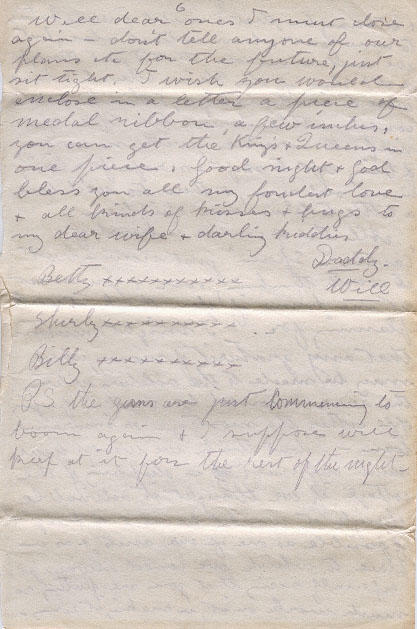 6
Well dear ones I must close
again - don't tell anyone of our
plans etc for the future, just
sit tight. I wish you would
enclose in a letter a piece of
medal ribbon, a few inches,
you can get the Kings & Queens in
one piece. Good night & God
bless you all my fondest love
& all kinds of kisses & hugs to
my dear wife & darling kiddies
Daddy.
Will
Betty xxxxxxxxxxx
Shirley xxxxxxxxxxx
Billy xxxxxxxxxxx
PS the guns are just commencing to
boom again & I suppose will
keep at it for the rest of the night